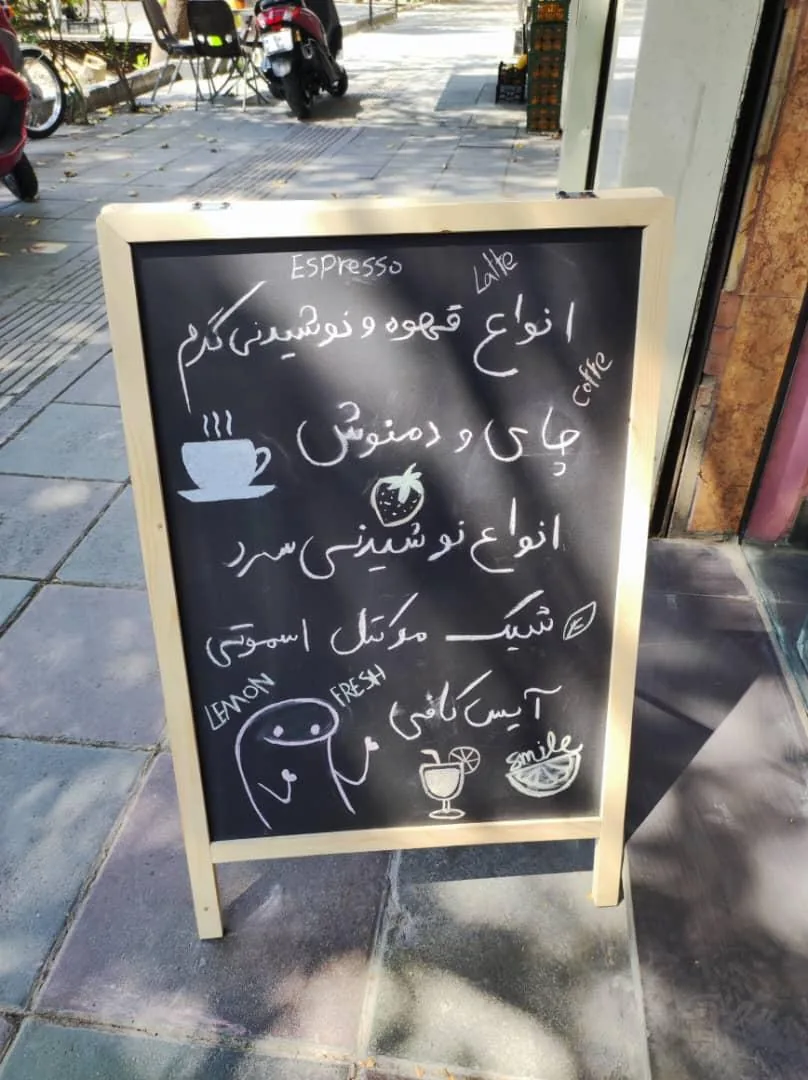 Espresso
Latte
انواع قهوه و نوشیدنی گرم
Coffe
چای و دمنوش
انواع نوشیدنی سرد
شیک موکتل اسموتی
LEMON
FRESH
آیس کافی
smile